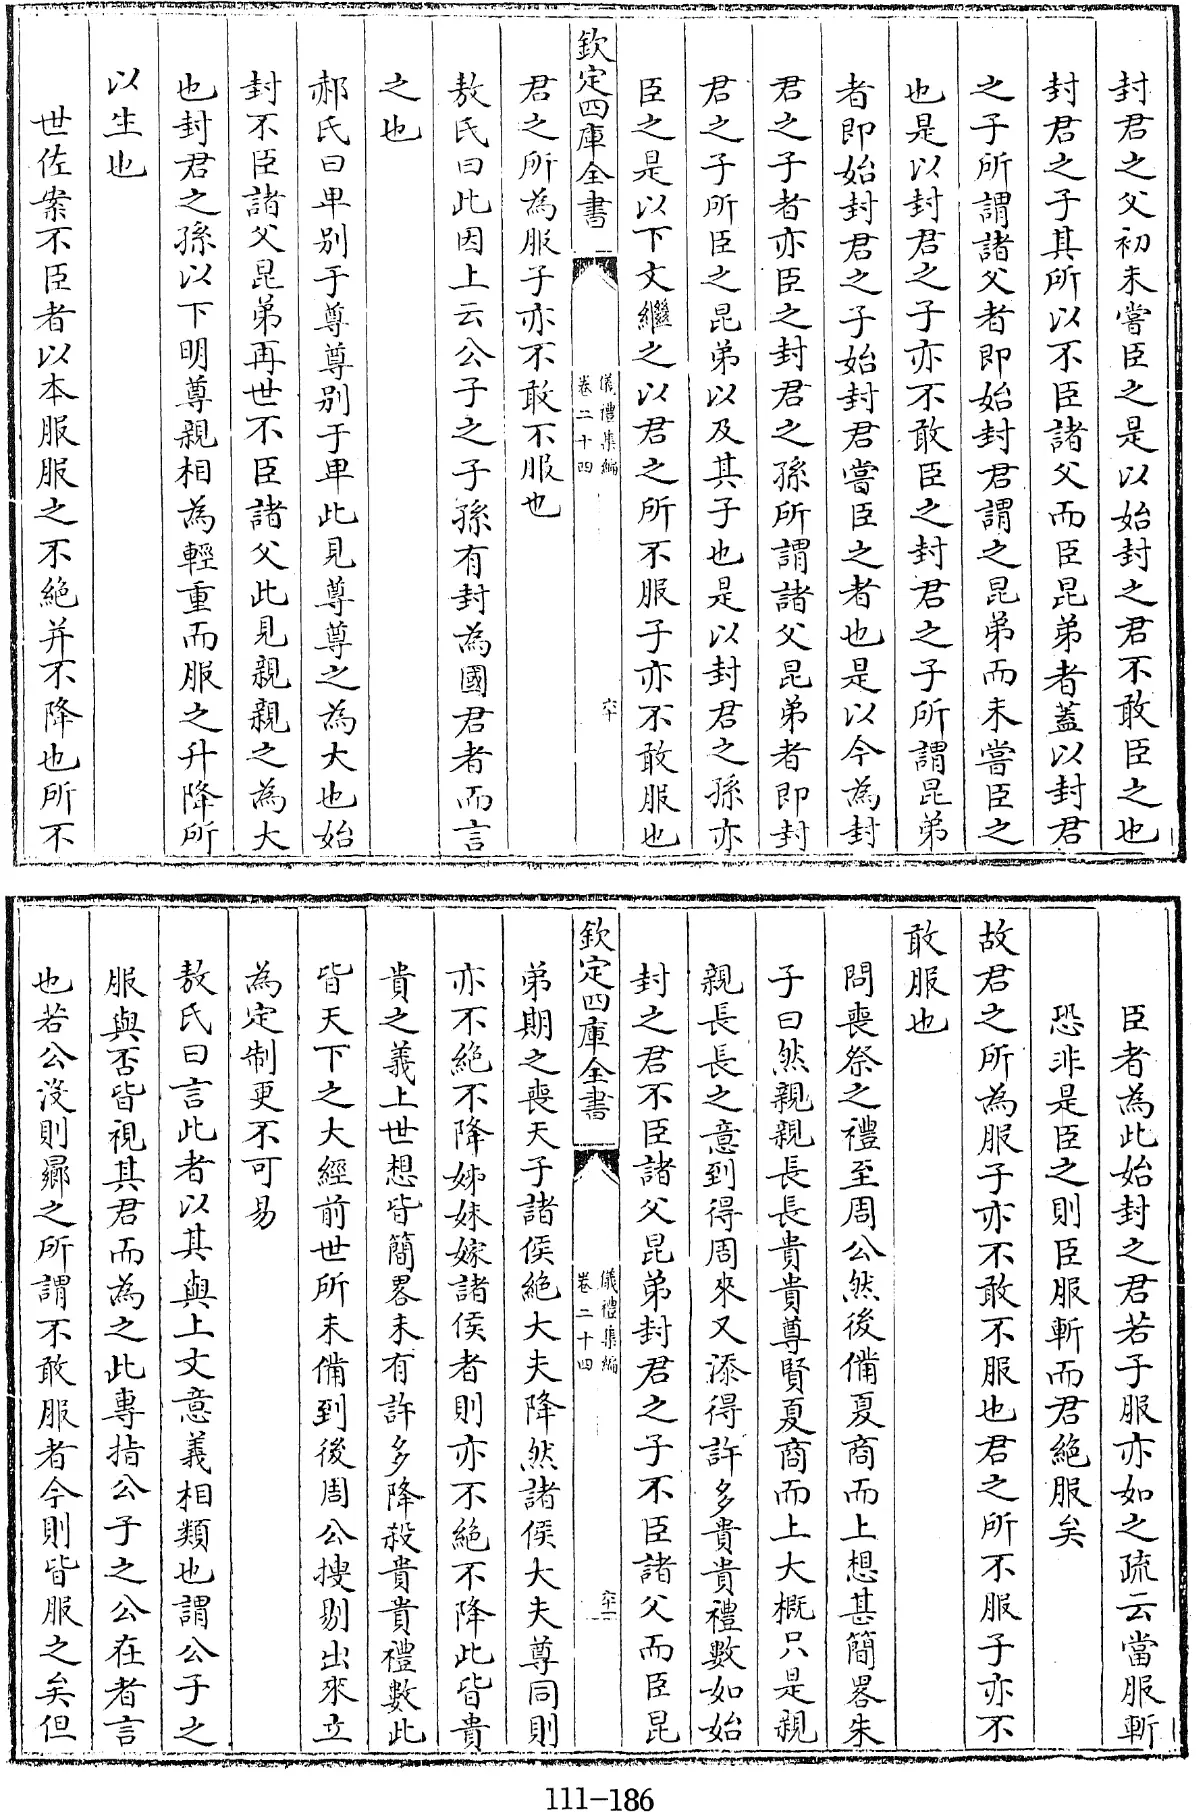 封君之父初未嘗臣之是以始封之君不敢臣之也
封君之子其所以不臣諸父而臣昆弟者蓋以封君
之子所謂諸父者即始封君謂之昆弟而未嘗臣之
也是以封君之子亦不敢臣之封君之子所謂昆弟
者即始封君之子始封君嘗臣之者也是以今為封
君之子者亦臣之封君之孫所謂諸父昆弟者即封
君之子所臣之昆弟以及其子也是以封君之孫亦
臣之是以下文繼之以君之所不服子亦不敢服也
欽定四庫全書
儀禮集編
卷二十四
六十
君之所為服子亦不敢不服也
敖氏曰此因上云公子之子孫有封為國君者而言
之也
郝氏曰卑別于尊尊別于卑此見尊尊之為大也始
封不臣諸父昆弟再世不臣諸父此見親親之為大
也封君之孫以下明尊親相為輕重而服之升降所
以生也
世佐案不臣者以本服服之不絶并不降也所不
臣者為此始封之君若子服亦如之疏云當服斬
恐非是臣之則臣服斬而君絶服矣
故君之所為服子亦不敢不服也君之所不服子亦不
敢服也
問喪祭之禮至周公然後備夏商而上想甚簡畧朱
子曰然親親長長貴貴尊賢夏商而上大概只是親
親長長之意到得周來又添得許多貴貴禮數如始
封之君不臣諸父昆弟封君之子不臣諸父而臣昆
欽定四庫全書
儀禮集編
卷二十四
六十一
弟期之喪天子諸侯絶大夫降然諸侯大夫尊同則
亦不絶不降姊妹嫁諸侯者則亦不絶不降此皆貴
貴之義上世想皆簡畧未有許多降殺貴貴禮數此
皆天下之大經前世所未備到後周公搜剔出來立
為定制更不可易
敖氏曰言此者以其與上文意義相類也謂公子之
服與否皆視其君而為之此專指公子之公在者言
也若公沒則曏之所謂不敢服者今則皆服之矣但
111-186